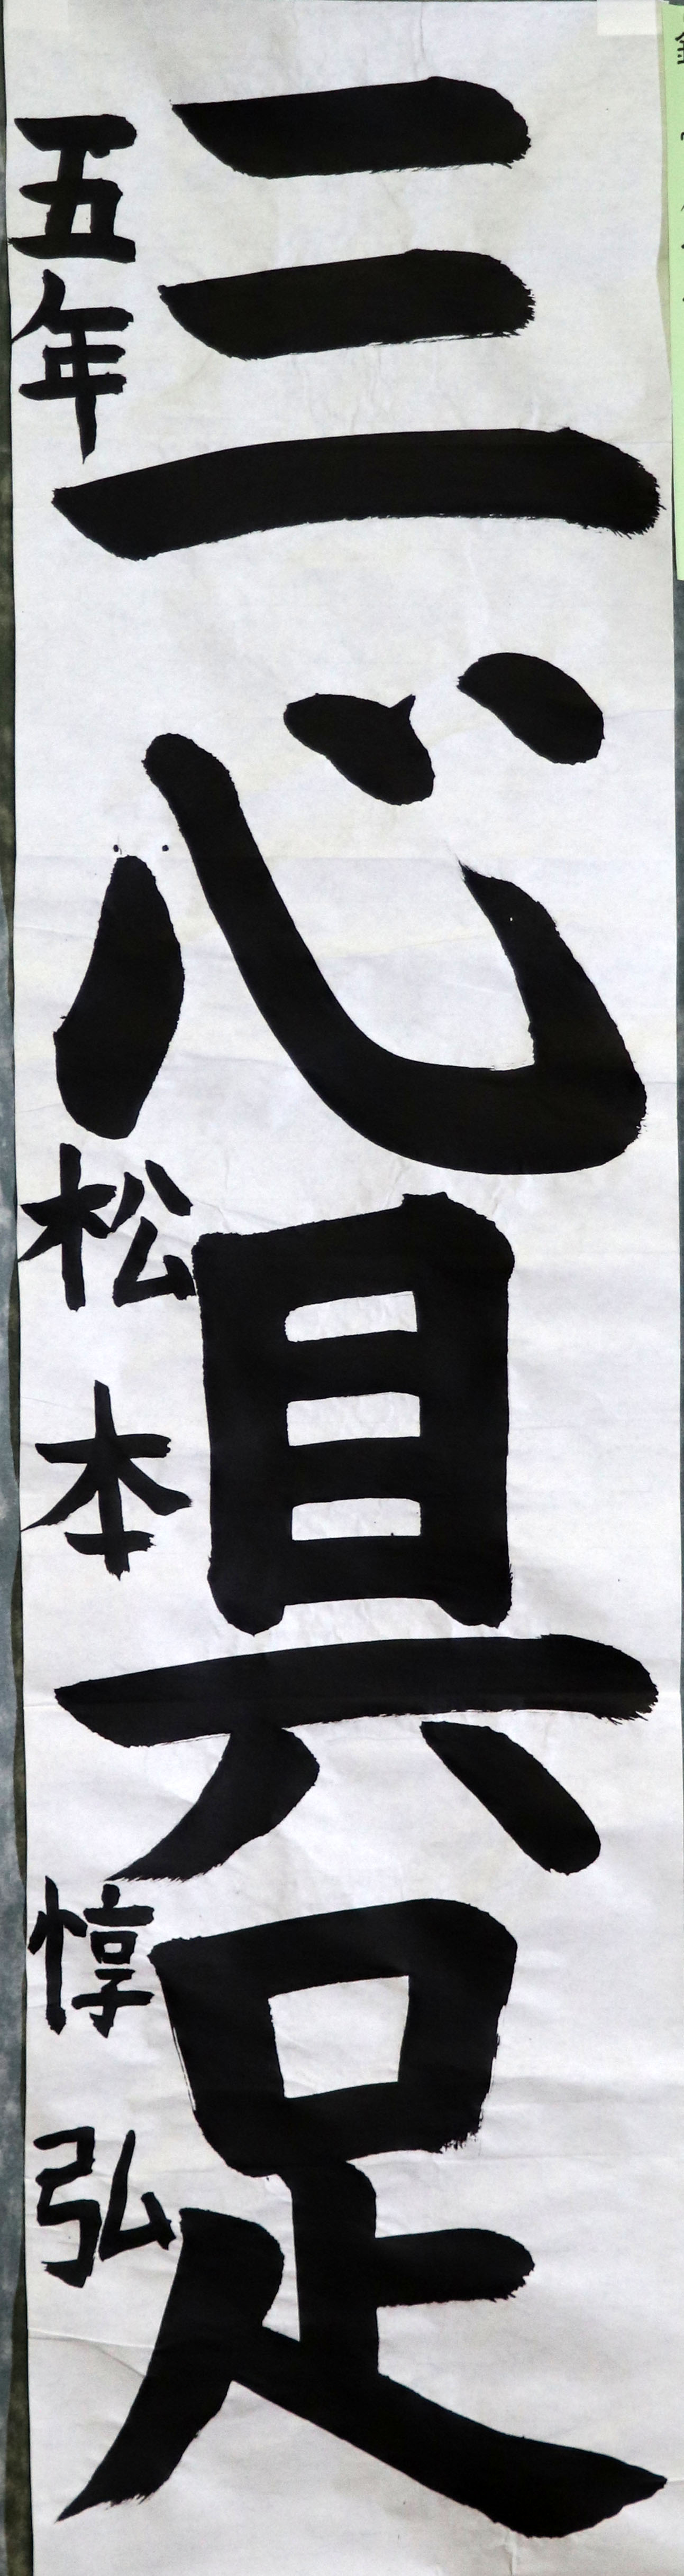 三心具足
五年 松本 惇弘